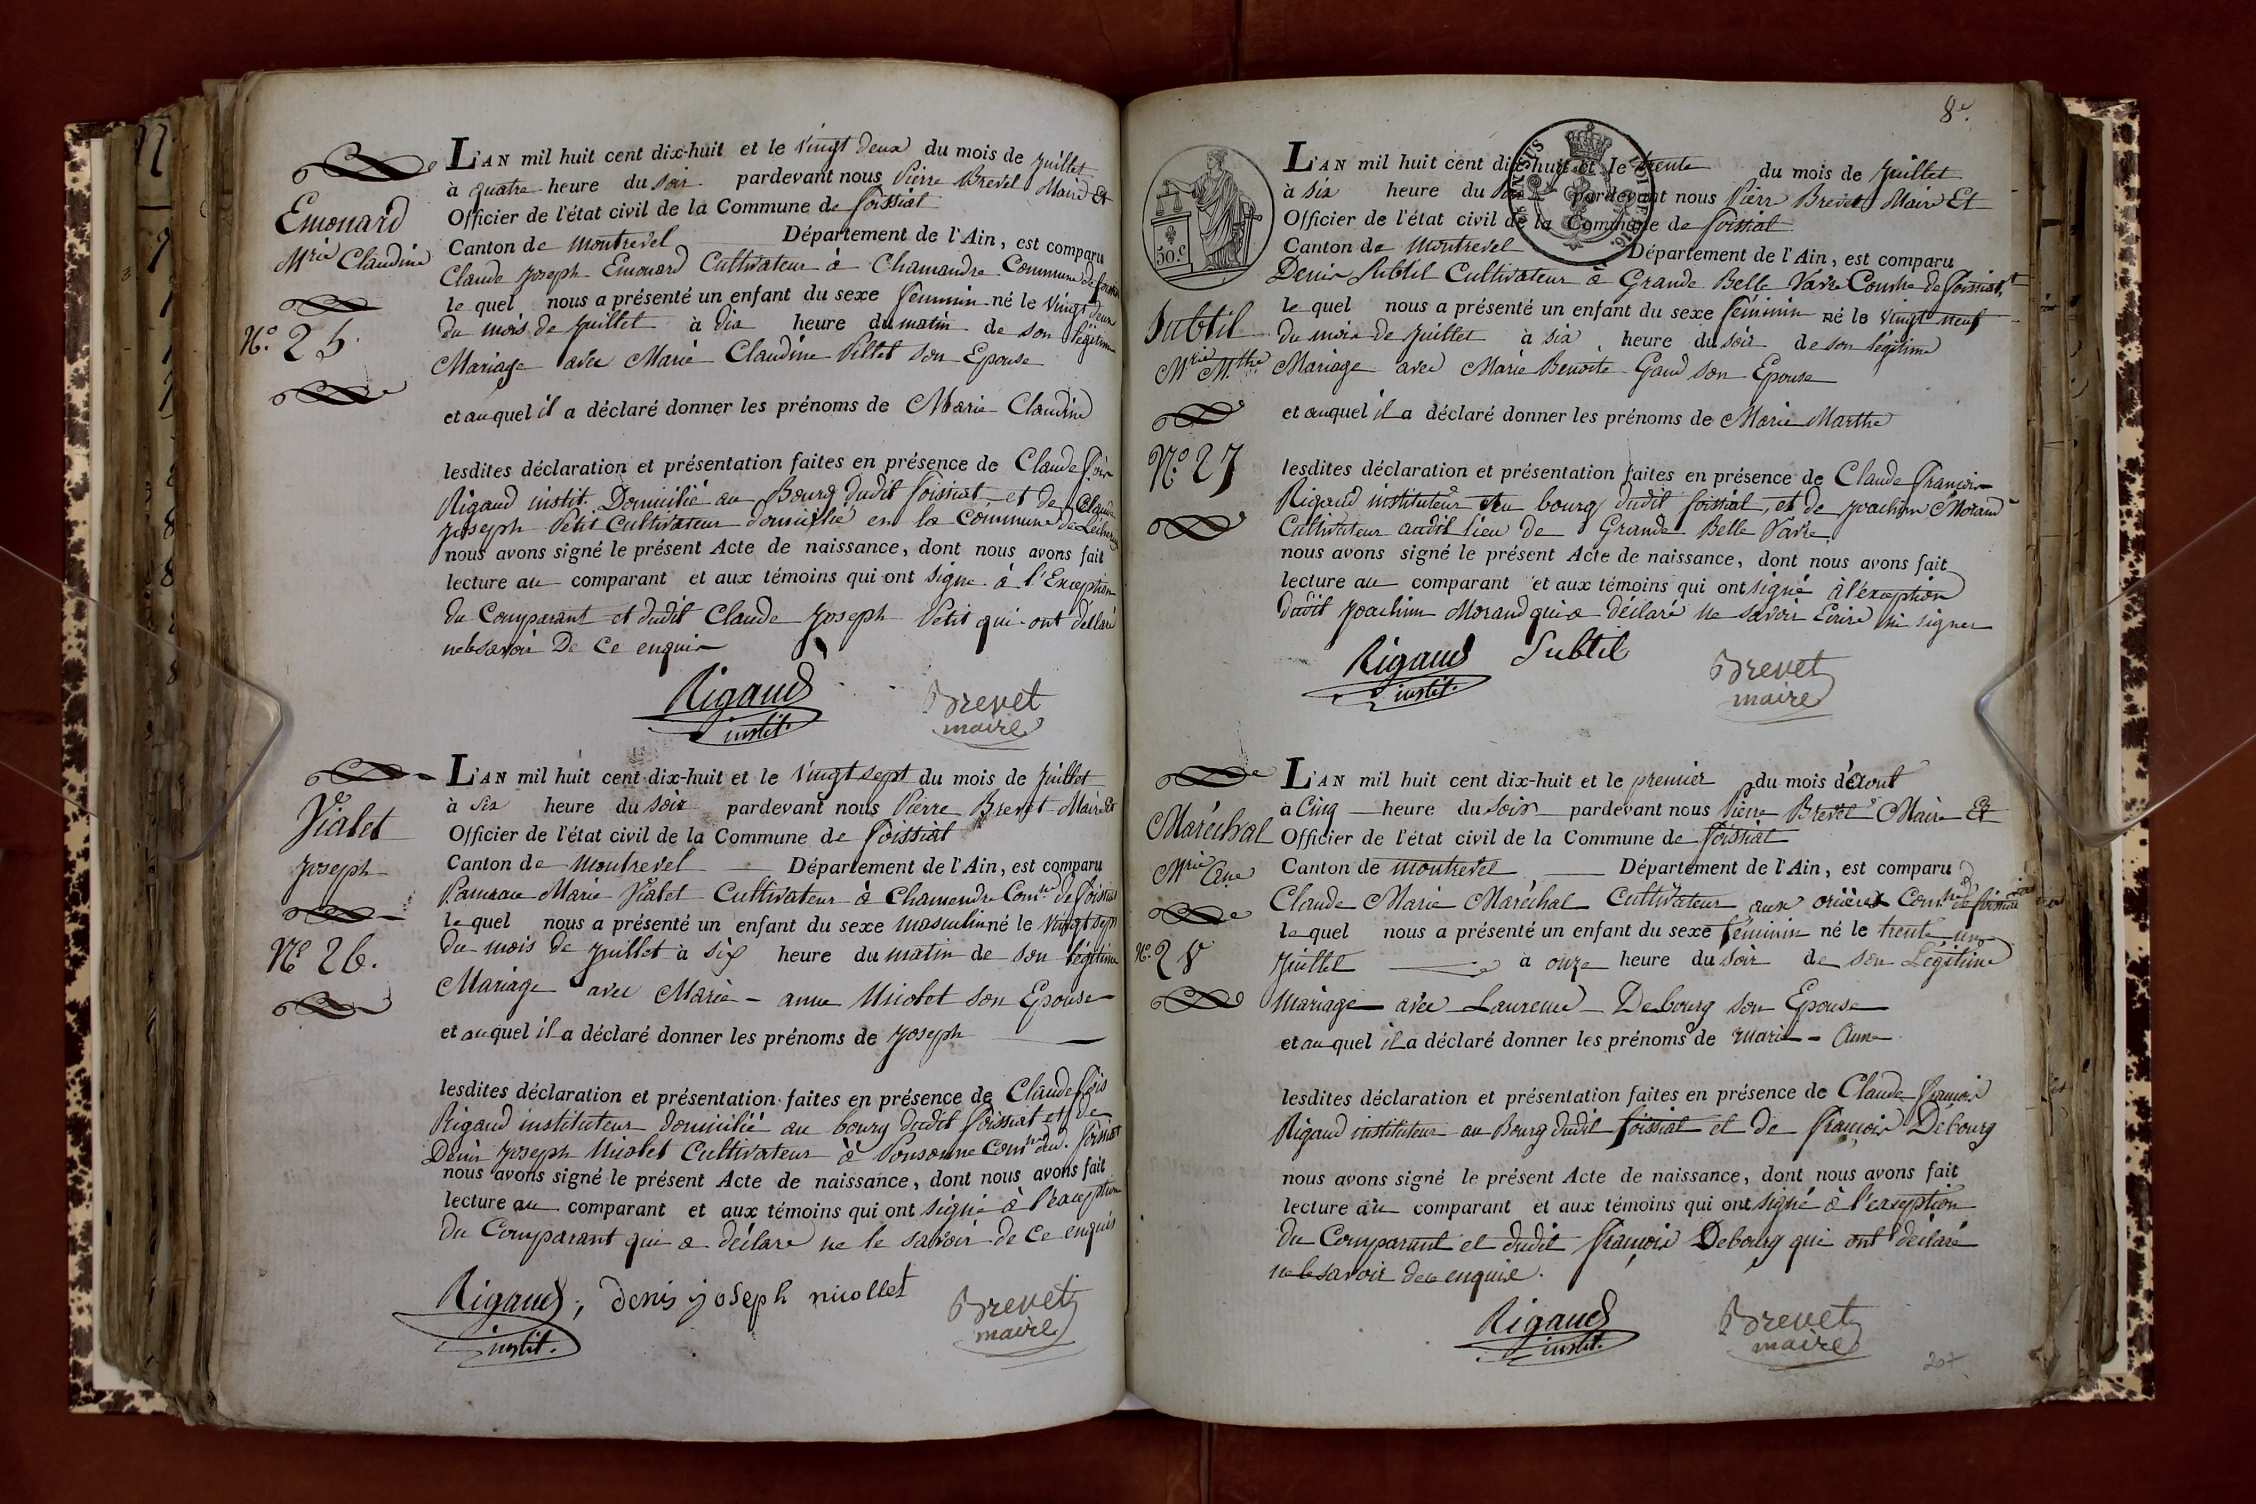 Emonard
Mrie Claudine
No. 25.
L'AN mil huit cent dix-huit et le vingt deux du mois de juillet
à quatre heure du soir pardevant nous Pierre Brevet Maire Et
Officier de l'état civil de la Commune de foissiat
Canton de montrevel Département de l'Ain, est comparu
Claude joseph Emonard Cultivateur à Chamandre Commune de foissiat
le quel nous a présenté un enfant du sexe féminin né le vingt deux
du mois de juillet à dix heure du matin de son légitime
Mariage avec Marie Claudine son Epouse
et au quel il a déclaré donner les prénoms de Marie Claudine
lesdites déclaration et présentation faites en présence de Claude fois
Rigaud instit. Domicilié au Bourg dudit foissiat et de Claude
joseph Petit Cultivateur domicilié en la commune de
nous avons signé le présent Acte de naissance, dont nous avons fait
lecture au comparant et aux témoins qui ont signé à l'Exception
du Comparant et dudit Claude joseph Petit qui ont déclaré
ne le savoir De ce enquis
Rigaud
instit.
Brevet
maire
Vialet
joseph
No 26.
L'AN mil huit cent dix-huit et le vingt sept du mois de juillet
à six heure du soir pardevant nous Pierre Brevet Maire Et
Officier de l'état civil de la Commune de foissiat
Canton de montrevel Département de l'Ain, est comparu
Marie Vialet Cultivateur à Chamendre Comne de foissiat
le quel nous a présenté un enfant du sexe masculin né le vingt sept
du mois de juillet à six heure du matin de son légitime
Mariage avec Marie - anne Nicolet son Epouse
et au quel il a déclaré donner les prénoms de joseph
lesdites déclaration et présentation faites en présence de Claude fois
Rigaud instituteur domicilié au bourg dudit foissiat et de
Denis joseph Nicolet Cultivateur à Ponsonne Comne dud. foissiat
nous avons signé le présent Acte de naissance, dont nous avons fait
lecture au comparant et aux témoins qui ont signé à l'exception
du Comparant qui a déclaré ne le savoir de ce enquis
Rigaud,
instit.
denis joseph nicollet
Brevet
maire
8e.
50 c
Subtil
Mrie Mthe
No. 27
L'AN mil huit cent dix-huit et le trente du mois de juillet
à six heure du soir pardevant nous Pierre Brevet Maire Et
Officier de l'état civil de la Commune de foissiat
Canton de montrevel Département de l'Ain, est comparu
Denis Subtil Cultivateur à Grande Belle Vavre Comne de foissiat
le quel nous a présenté un enfant du sexe féminin né le vingt neuf
du mois de juillet à six heure du soir de son légitime
Mariage avec Marie Benoite Gaud son Epouse
et auquel il a déclaré donner les prénoms de Marie Marthe
lesdites déclaration et présentation faites en présence de Claude françois
Rigaud instituteur au bourg dudit foissiat, et de joachim Morand
Cultivateur audit lieu de Grande Belle Vavre
nous avons signé le présent Acte de naissance, dont nous avons fait
lecture au comparant et aux témoins qui ont signé à l'exception
dudit joachim Morand qui a déclaré ne savoir Ecrire ni signer
Rigaud
instit.
Subtil
Brevet
maire
Maréchal
Mrie Ane
No. 28
L'AN mil huit cent dix-huit et le premier du mois d'aout
à Cinq heure du soir pardevant nous Pierre Brevet Maire Et
Officier de l'état civil de la Commune de foissiat
Canton de montrevel Département de l'Ain, est comparu
Claude Marie Maréchal Cultivateur aux Comne de foissiat
le quel nous a présenté un enfant du sexe féminin né le trente un
juillet à onze heure du soir de son Légitime
mariage avec Laurence Debourg son Epouse
et au quel il a déclaré donner les prénoms de marie - Anne
lesdites déclaration et présentation faites en présence de Claude françois
Rigaud instituteur au Bourg dudit foissiat et de françois Debourg
nous avons signé le présent Acte de naissance, dont nous avons fait
lecture au comparant et aux témoins qui ont signé à l'exception
du Comparant et dudit françois Debourg qui ont déclaré
ne le savoir de ce enquis.
Rigaud
instit.
Brevet
maire